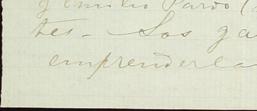 y Emilio Pardo (
tes. Los ga
emprenderla